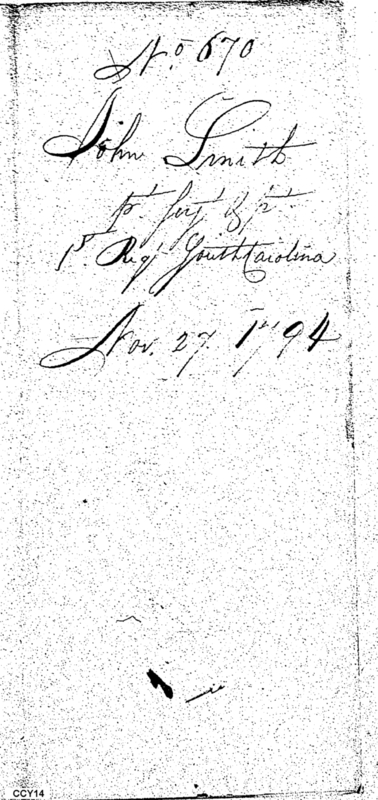 No. 670
John Smith
pt. serjt. & pt.
1st. Regt. South Carolina
Nov. 27. 1794
CCY14